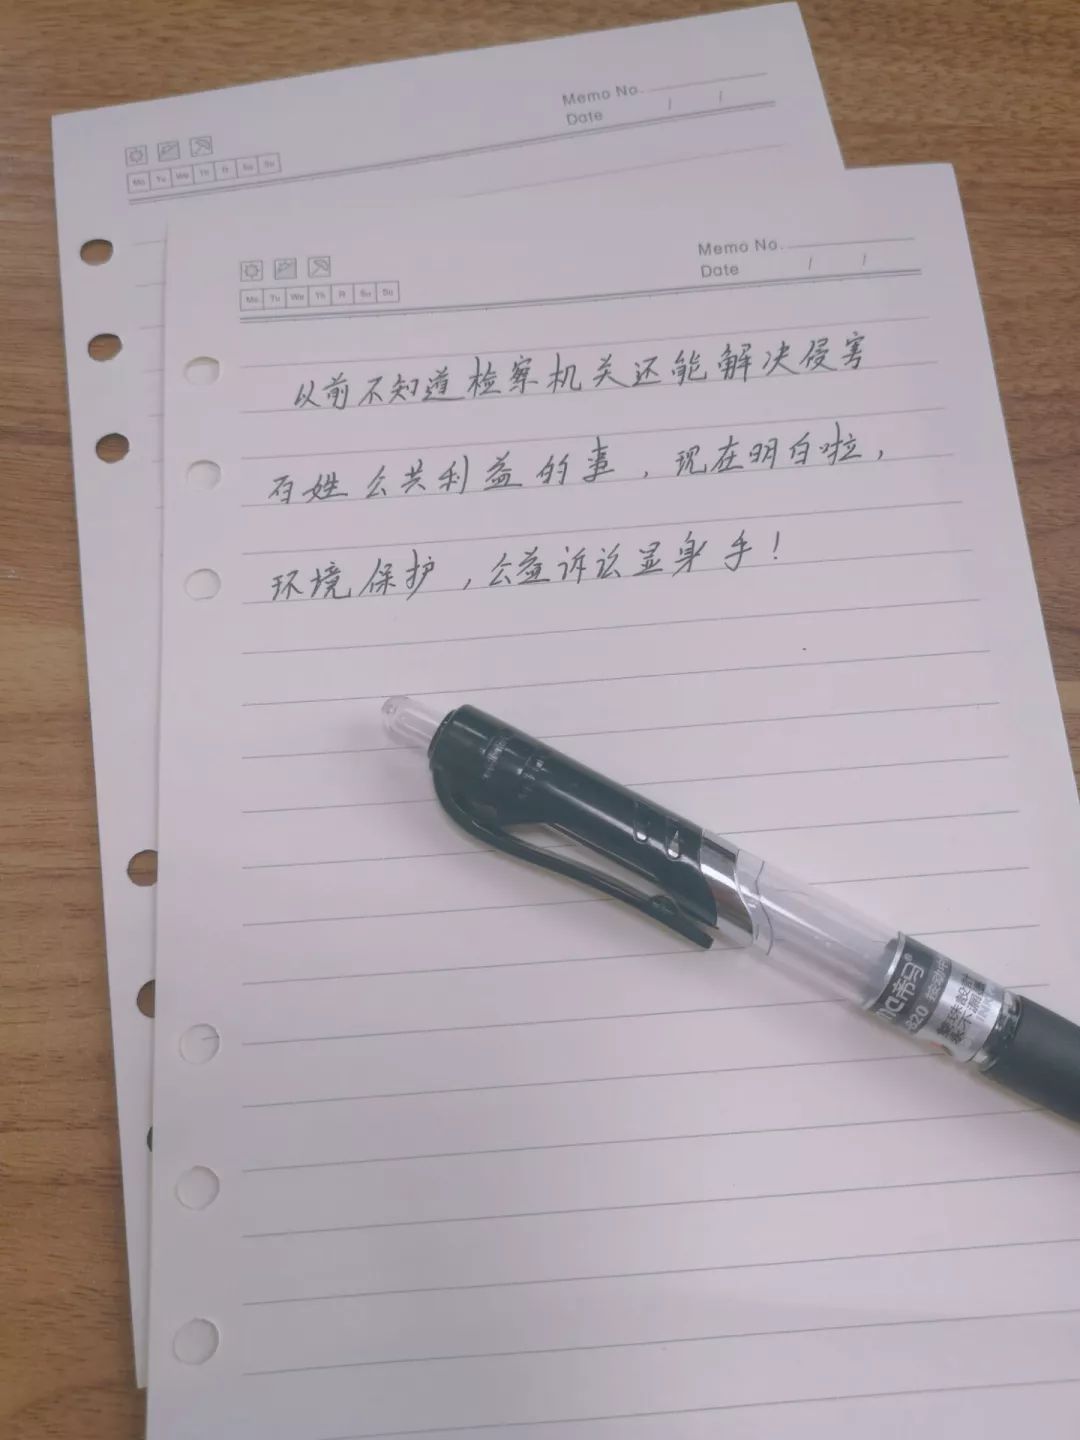 Memo No.
Date / /
Mo Tu We Th Fr Sa Su
Memo No.
Date / /
Mo Tu We Th R Sa Su
以前不知道检察机关还能解决侵害
百姓公共利益的事，现在明白啦，
环境保护，公益诉讼显身手！
帝马®
820 按动中
INK